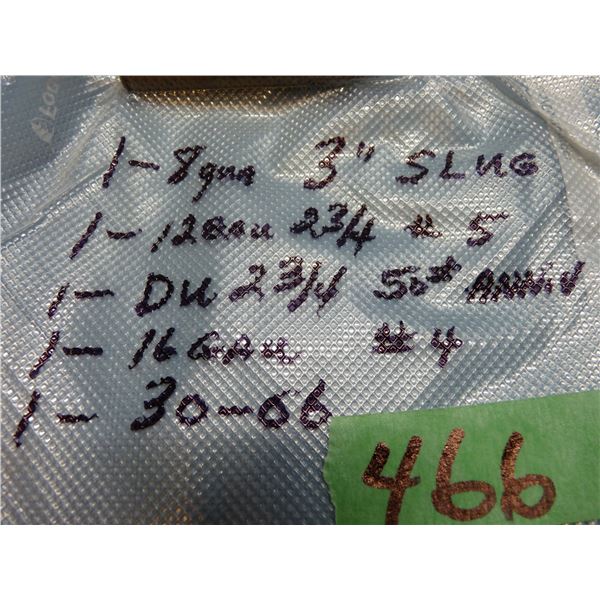 1 - 8 gua 3" SLUG
1 - 12 GAU 2 3/4 # 5
1 - DU 2 3/4 50th ANNIV
1 - 16 GAU # 4
1 - 30-06
466